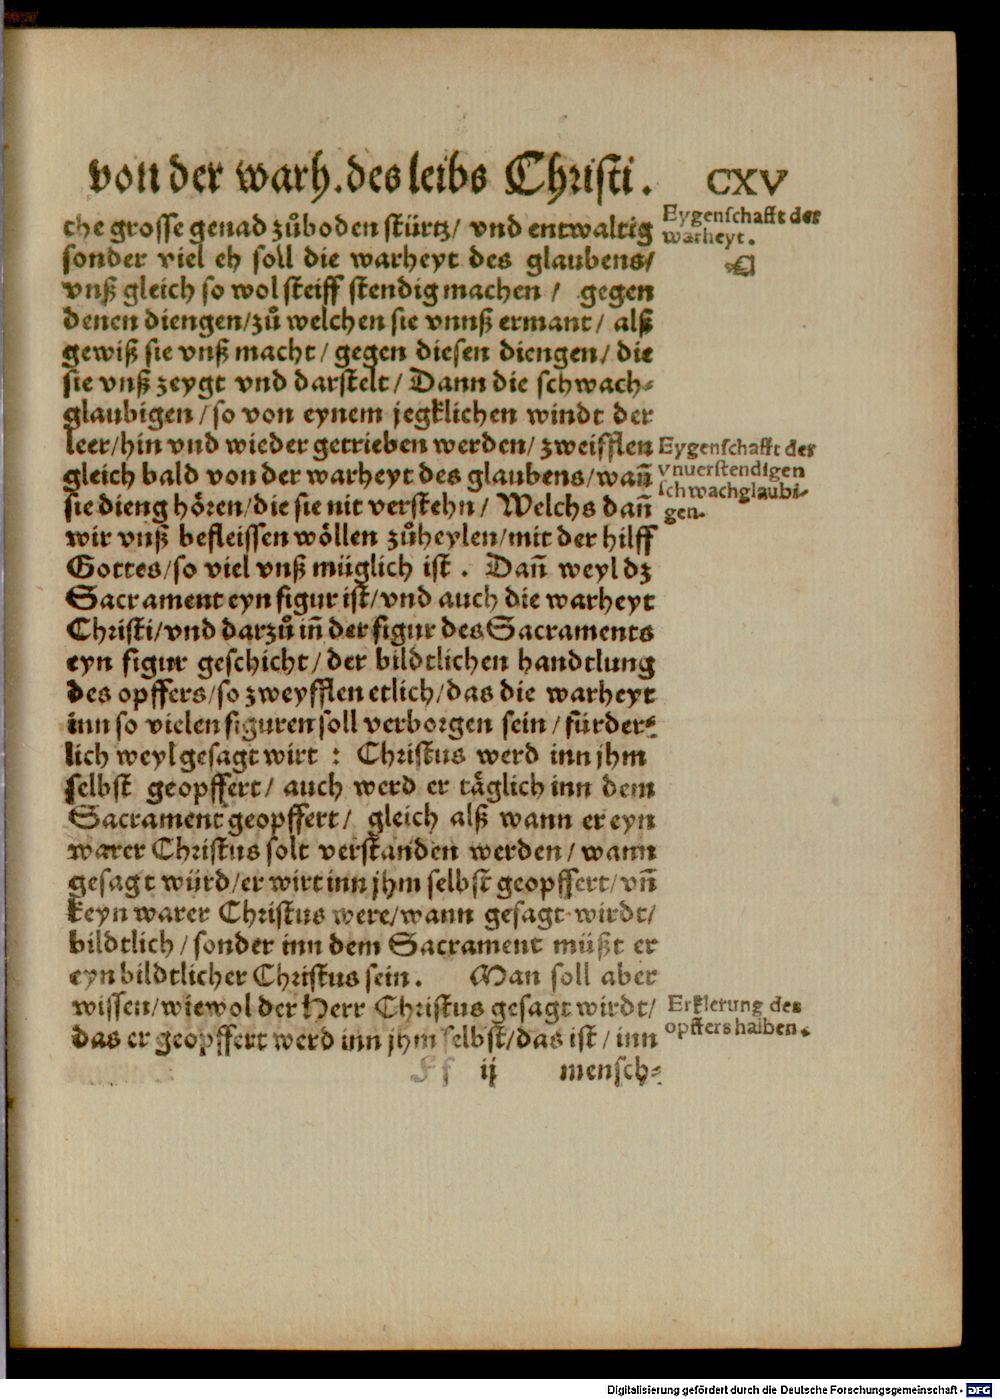 von der warh. des leibs Christi. CXV
che grosse genad zůboden stürtz/ vnd entwaltig
sonder viel eh soll die warheyt des glaubens/
vnß gleich so wol steiff stendig machen / gegen
denen diengen/zů welchen sie vnnß ermant/ alß
gewiß sie vnß macht/ gegen diesen diengen/ die
sie vnß zeygt vnd darstelt/ Dann die schwach-
glaubigen /so von eynem jegklichen windt der
leer/hin vnd wieder getrieben werden/ zweifflen
gleich bald von der warheyt des glaubens/wañ
sie dieng hören/die sie nit verstehn/ Welchs dañ
wir vnß befleissen wöllen zůheylen/mit der hilff
Gottes/so viel vnß müglich ist. Dañ weyl dz
Sacrament eyn figur ist/vnd auch die warheyt
Christi/vnd darzů iñ der figur des Sacraments
eyn figur geschicht/der bildtlichen handtlung
des opffers/so zweyfflen etlich/das die warheyt
inn so vielen figuren soll verborgen sein/fürder-
lich weyl gesagt wirt : Christus werd inn jhm
selbst geopffert/ auch werd er täglich inn dem
Sacrament geopffert/ gleich alß wann er eyn
warer Christus solt verstanden werden/wann
gesagt würd/er wirt inn jhm selbst geopffert/vñ
keyn warer Christus were/wann gesagt wirdt/
bildtlich/sonder inn dem Sacrament müßt er
eyn bildtlicher Christus sein. Man soll aber
wissen/wiewol der Herr Christus gesagt wirdt/
das er geopffert werd inn jhm selbst/das ist/inn
Ff ij mensch-
Eygenschafft der
warheyt.
☜
Eygenschafft der
vnuerstendigen
schwachglaubi-
gen.
Erklerung des
opffers halben.
Digitalisierung gefördert durch die Deutsche Forschungsgemeinschaft - DFG